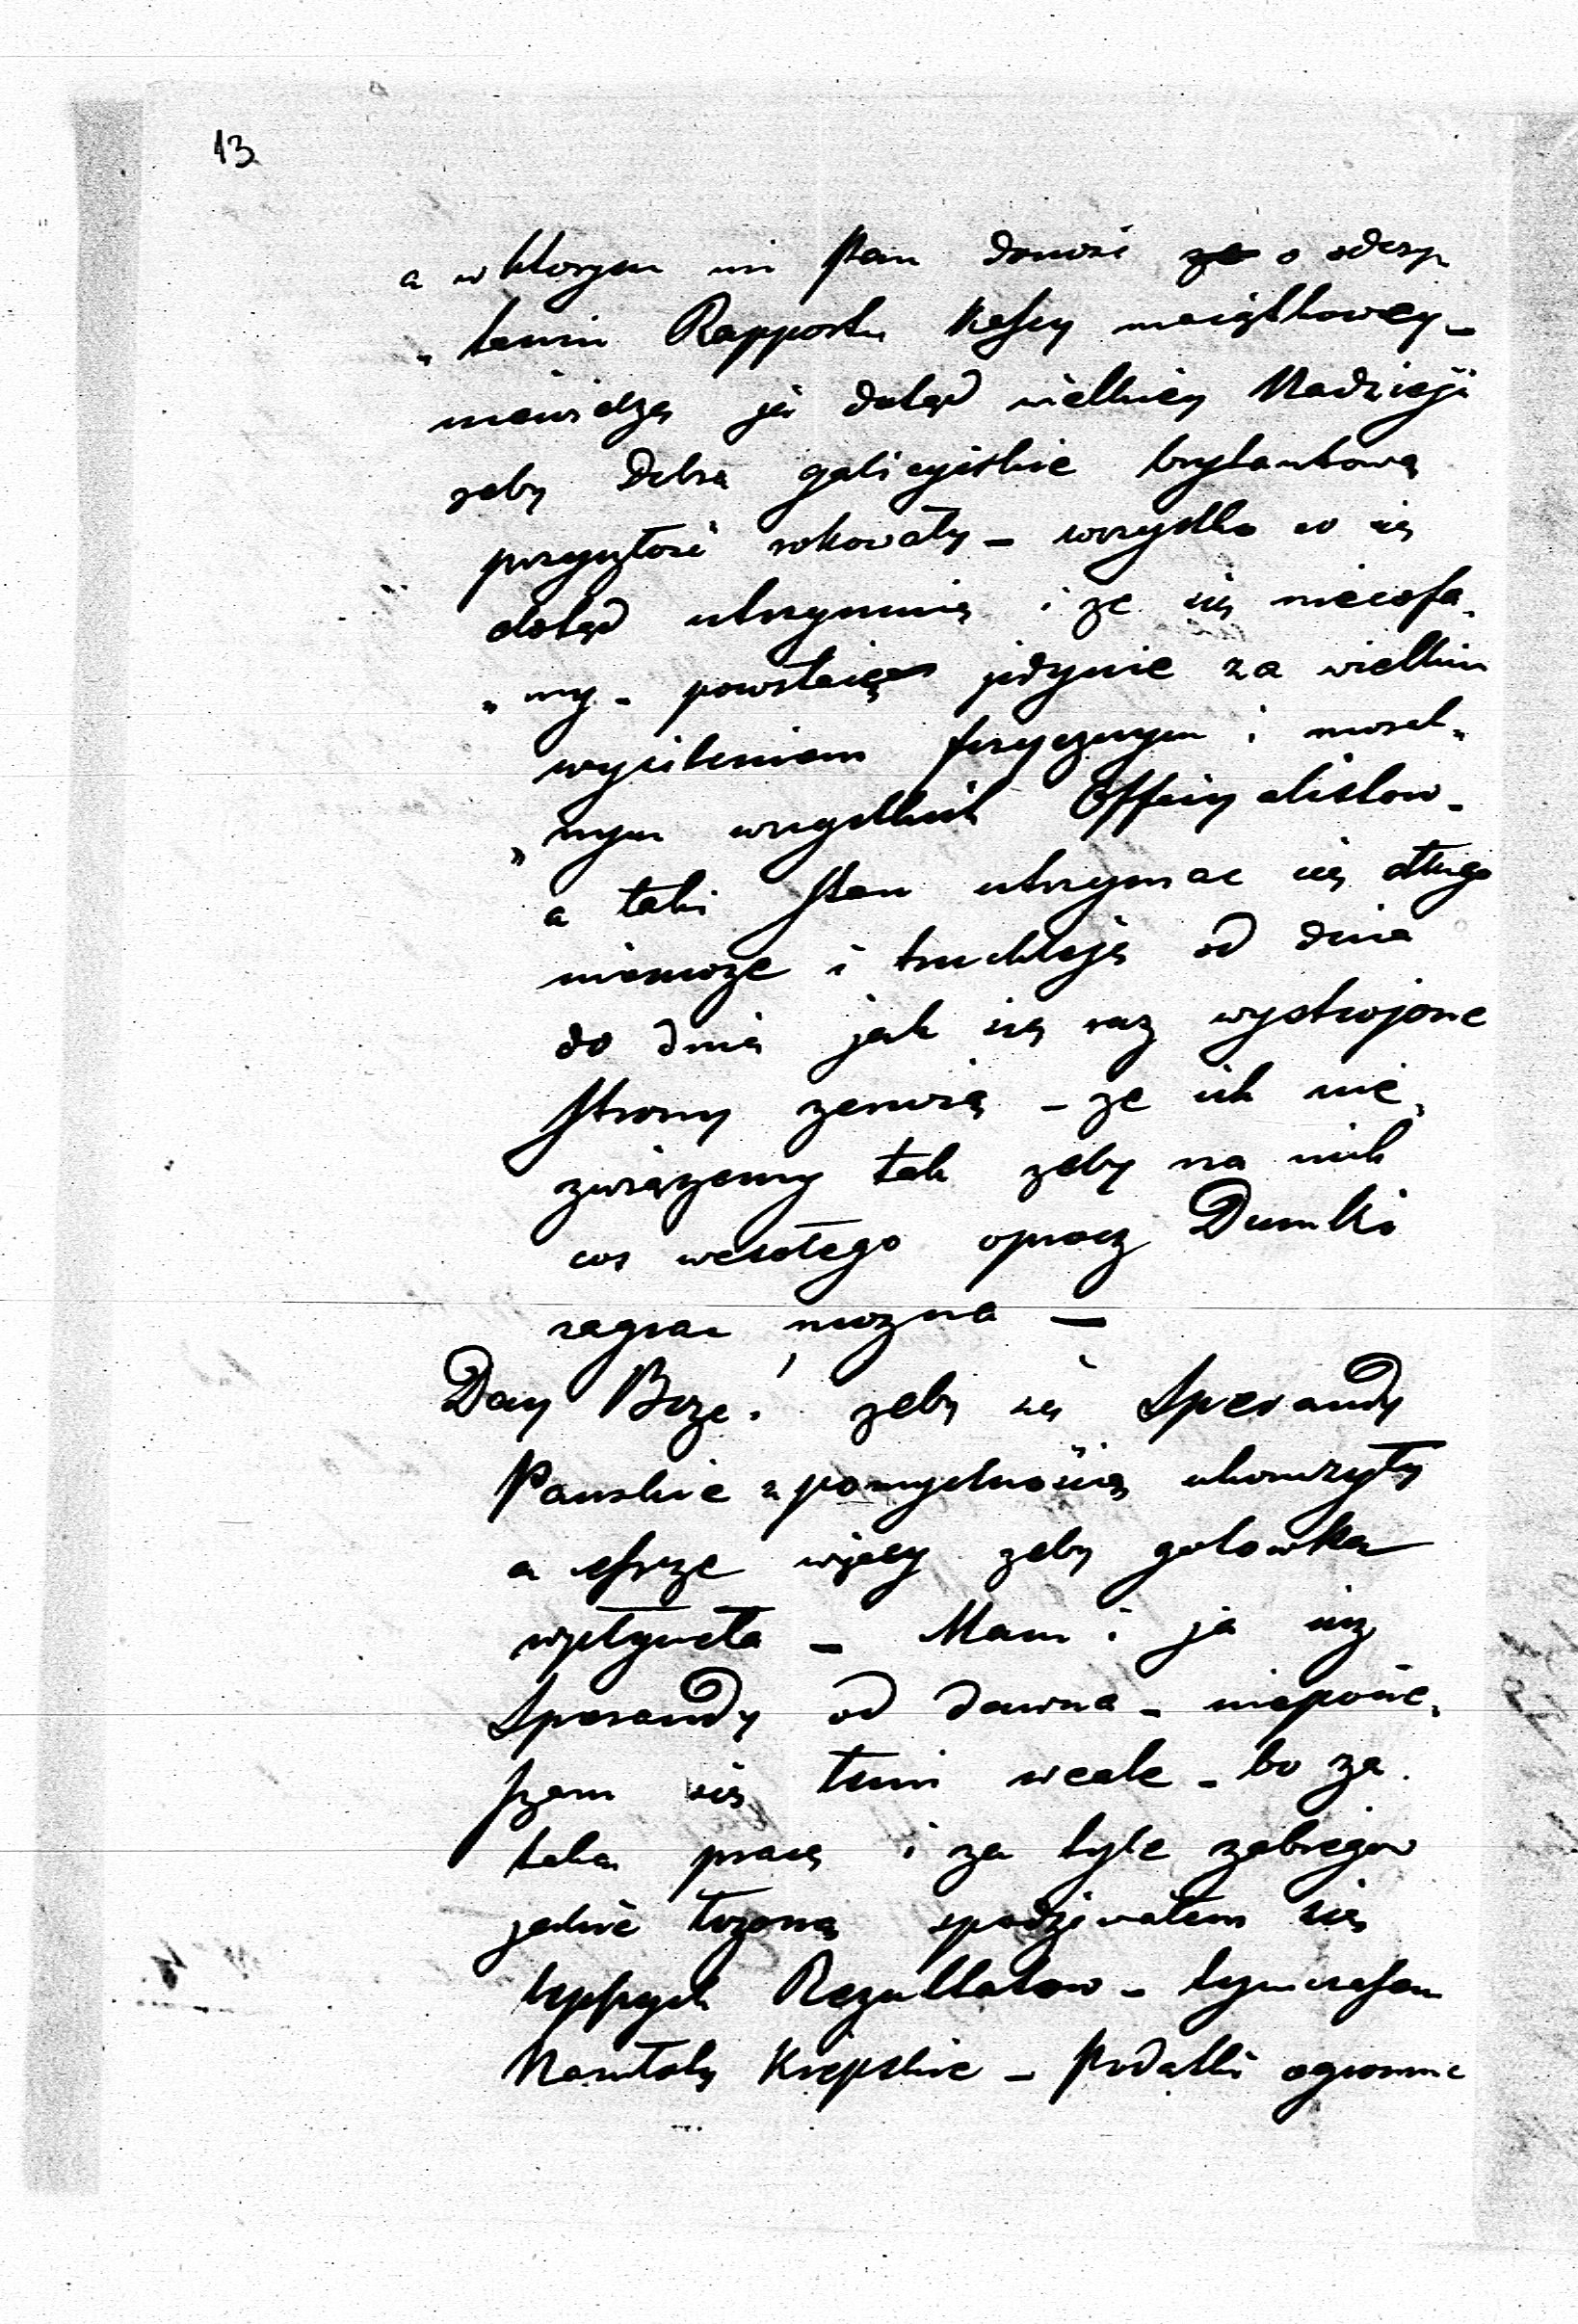 13
a w ktorym mi Pan donosi ze o odesy
"łaniu Rapportu Kassy maiątkowey -
niewidzę ja dotąd wielkiey Nadzieji
zeby Dobra galicyiskie brylantową
przyszłość rokowały - wszystko co się
dotąd utrzymuię i ze się niecofa„
„my - powstaię jedynie za wielkim
wysileniem fizycznym i moral„
„nym wszystkich Officyalistow -
a taki Stan utrzymac się długo
niemoze i truchleję od dnia
do dnia jak się raz wystrojone
Strony zerwią - ze ich nie„
zwiążemy tak zeby na nich
cos wesołego oprocz Dumki
zagrac mozna —
Day Boze! zeby się Sperandy
Panskie z pomyslnością ukonczyły
a jeszcze więcey zeby gotowka
wpłyneła - Mam i ja też
Sperandy od dawna - niepocie„
szam się temi wcale - bo za
taką pracę i za tyle zabiegow
jakie łozono spodziewałem się
lepszych Rezultatow - tymczasem
Namioty Kiepskie - Podatki ogromne